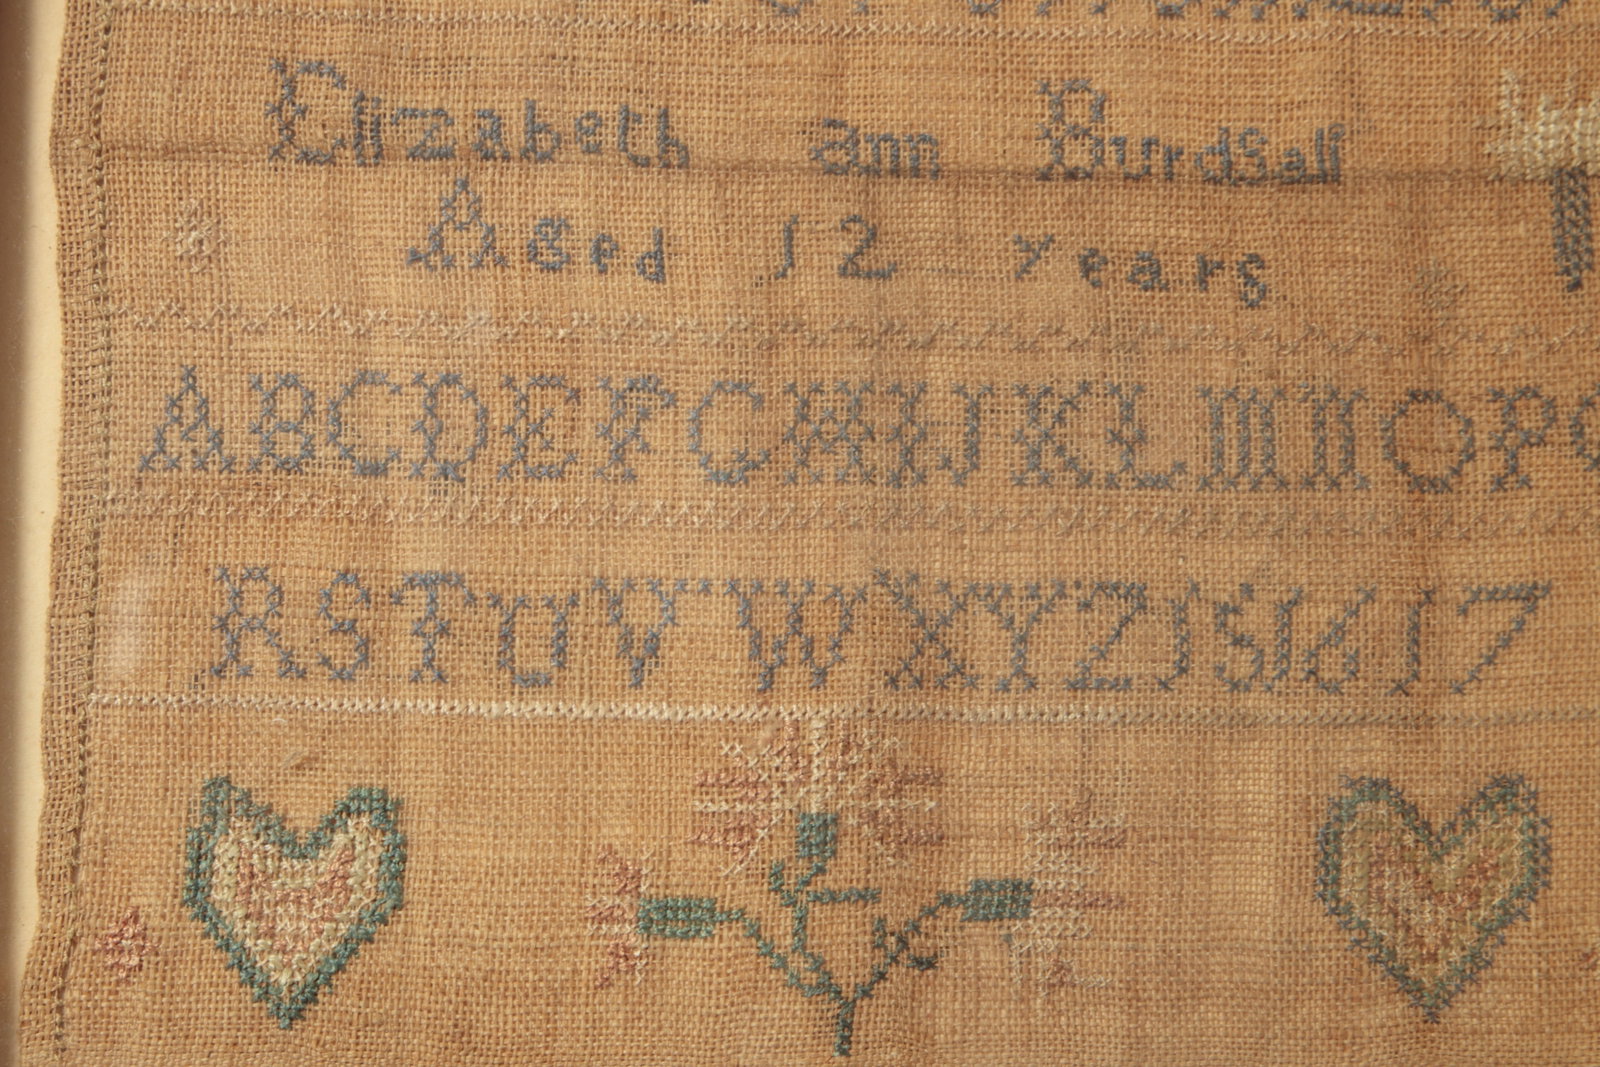 Elizabeth ann Burdsall
Aged 12 years
ABCDEFGHIJKLMNOP
RSTUVWXYZ 15 16 17